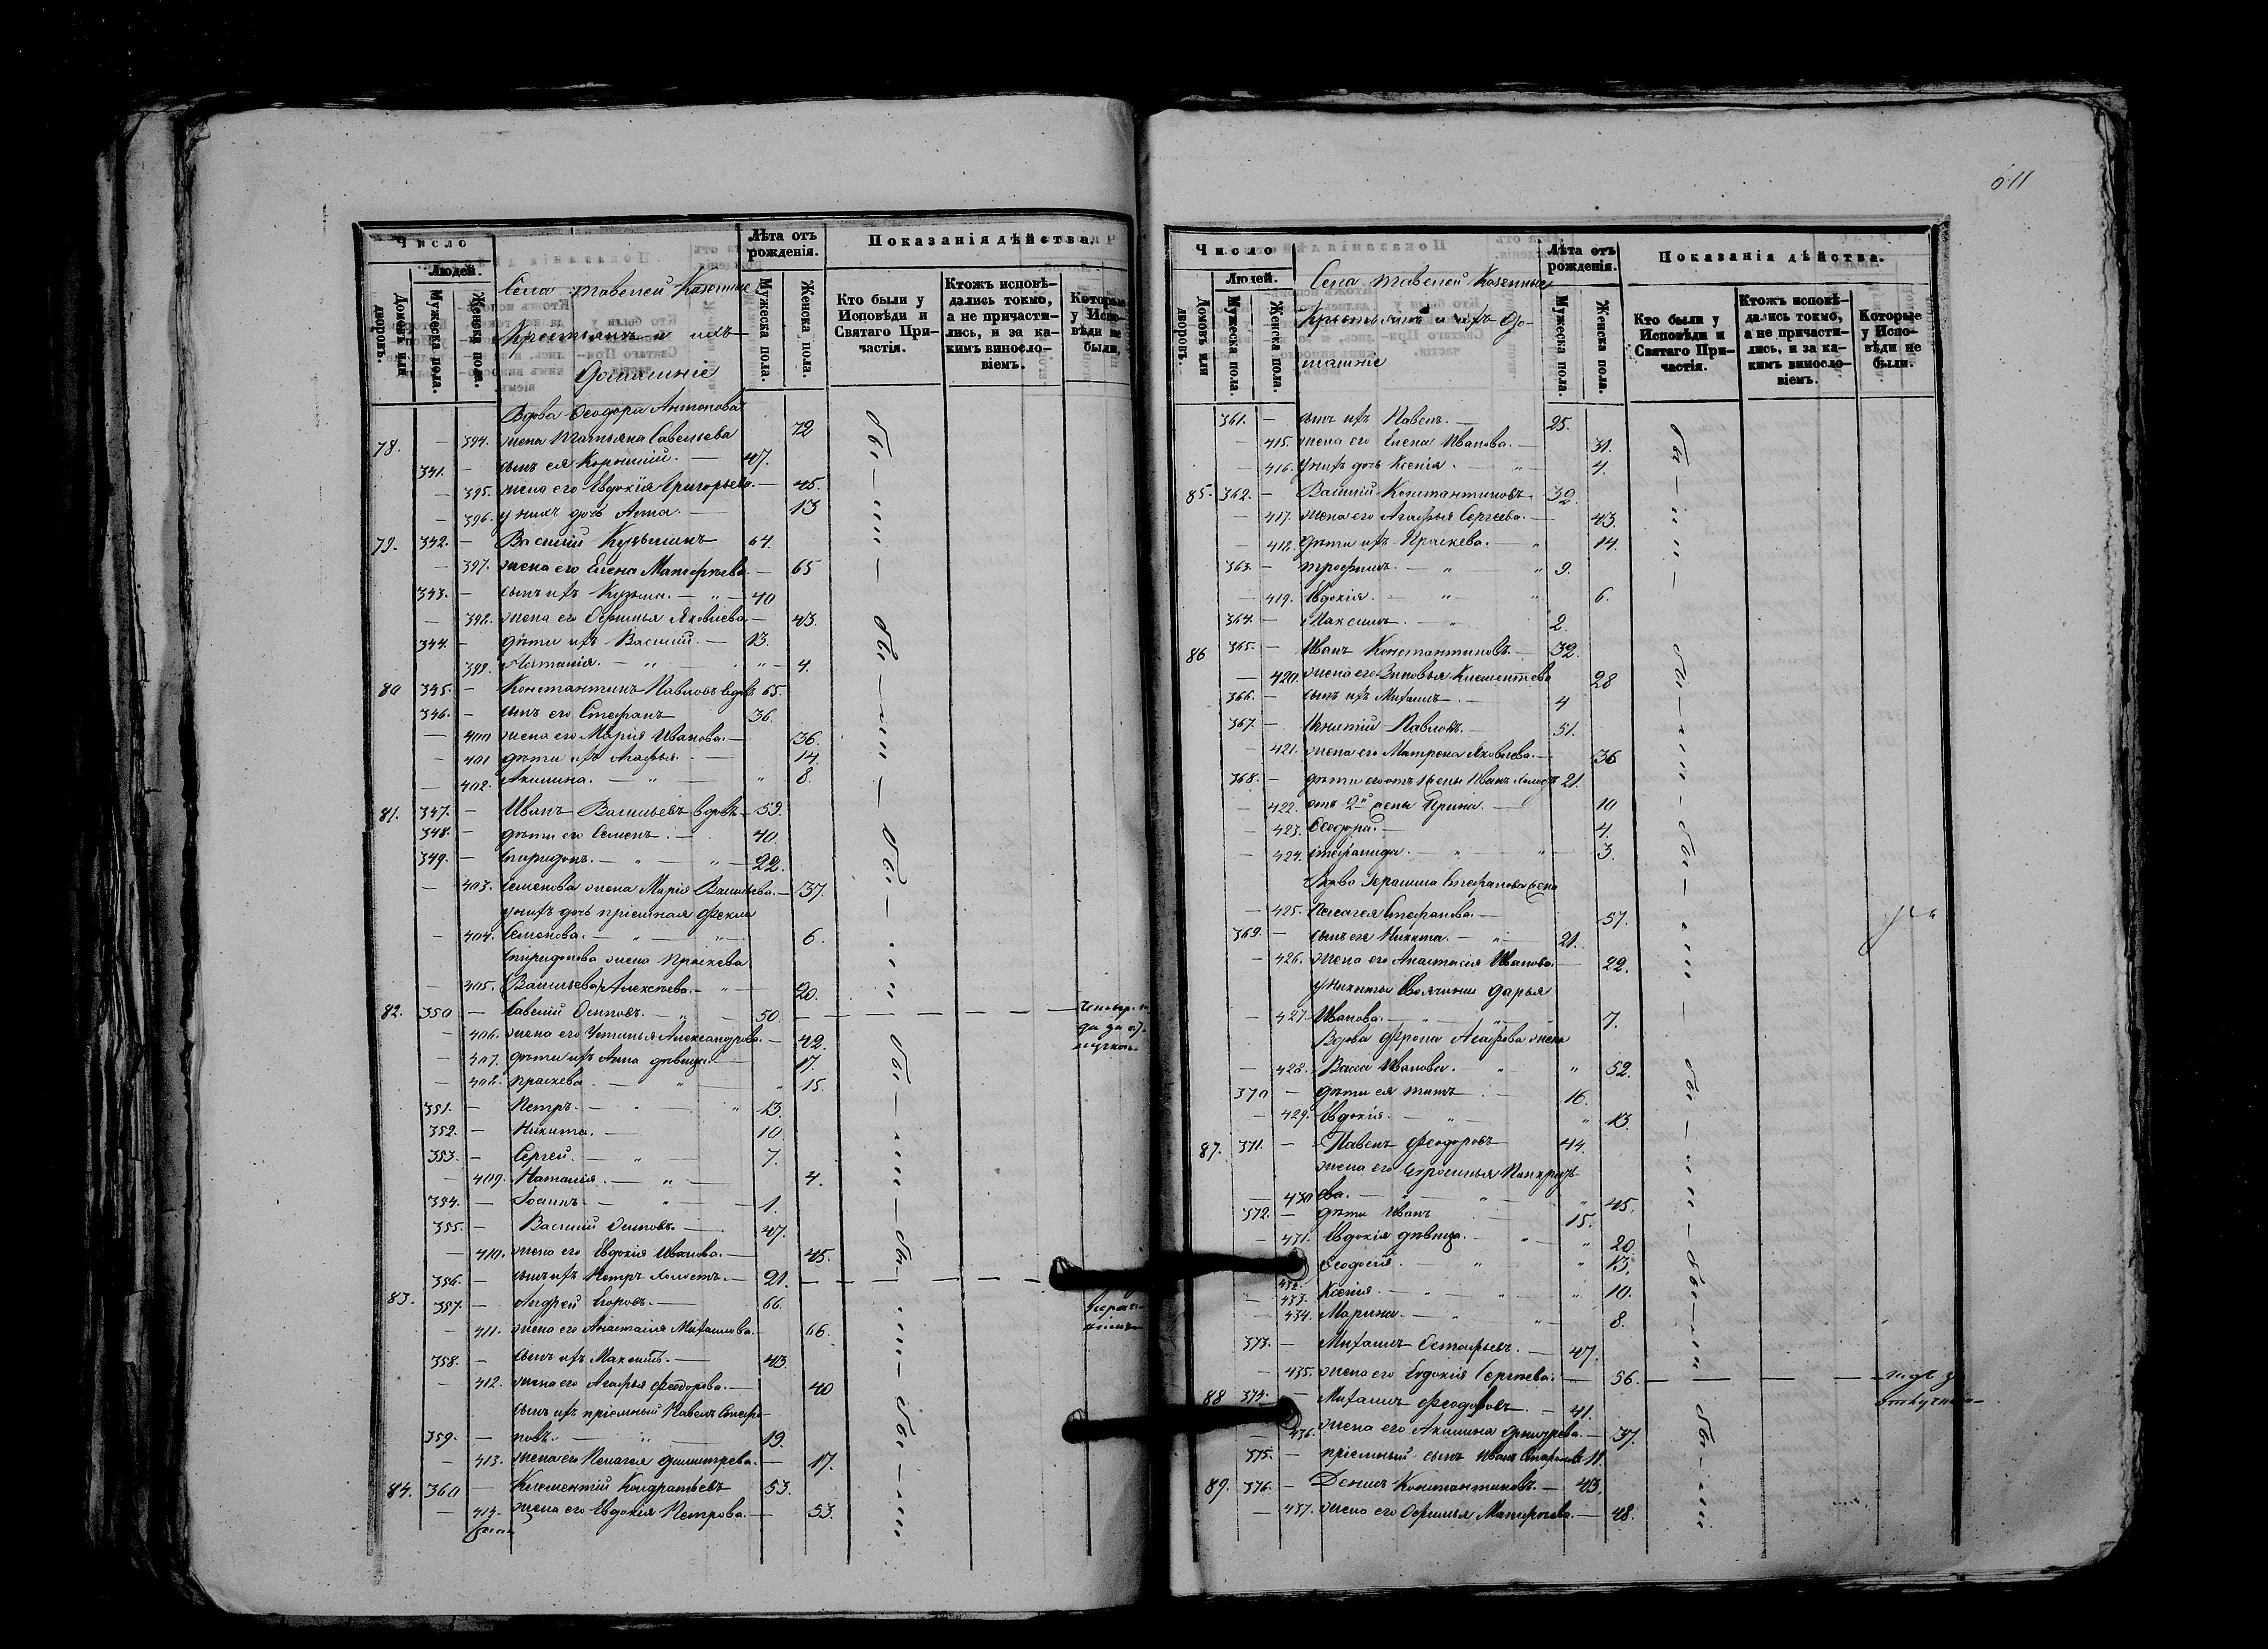 Число
Людей.
Домовъ или дворовъ.
Мужеска пола.
Женска пола.
Села Тавелей Казенные
Крестьяне и ихъ
домашніе
Лѣта отъ рожденія.
Мужеска пола.
Женска пола.
Показанія дѣйства.
Кто были у Исповѣди и Святаго Причастія.
Ктожъ исповѣдались токмо, а не причастились, и за какимъ винословіемъ.
Которые у Исповѣди не были.
Вдова Ѳеодора Антонова
78. — 394. жена Татьяна Савельева 72
341. — сынъ ея Корнилій. — 47.
— 395. жена его Евдокія Григорьева. — 45
— 396. у нихъ дочь Анна. — 13
79. 342. — Василій Кузьминъ 64.
— 397. жена его Елена Матѳѣева. — 65
343. — сынъ ихъ Кузьма. — 40
— 398. жена его Ефимья Яковлева. — 43.
344. — дѣти ихъ Василій. — 13.
399. Наталія. — 4.
80 345. — Константинъ Павловъ вдовъ 65.
346. — сынъ его Стефанъ 36.
— 400 жена его Марія Иванова. — 36.
— 401 дѣти ихъ Агафья. — 14.
— 402. Акилина. — 8.
81. 347. — Иванъ Васильевъ вдовъ — 59.
348. — дѣти его Семенъ. — 40.
349. — Спиридонъ. — 22.
— 403. Семенова жена Марія Васильева. — 37.
у нихъ дочь пріемная Ѳекла
— 404. Семенова. — 6.
Спиридонова жена Праскева
— 405. Васильева Алексѣева. — 20.
82. 350 — Савелій Осиповъ. — 50.
— 406. жена его Устинья Александрова. — 42.
— 407. дѣти ихъ Анна дѣвица. — 17.
— 408. Праскева. — 15.
351. — Петръ. — 13.
352. — Никита. — 10.
353. — Сергей. — 7.
— 409. Наталія. — 4.
354. — Іоаннъ. — 1.
355. — Василій Осиповъ. — 47.
— 410. жена его Евдокія Иванова. — 45.
356. — сынъ ихъ Петръ холостъ. — 21.
83. 357. — Андрей Егоровъ. — 66.
— 411. жена его Анастасія Михаилова. — 66.
358. — сынъ ихъ Максимъ. — 43.
— 412. жена его Агафья Ѳеодорова. — 40
сынъ ихъ пріемный Павелъ Стефа-
359. — новъ. — 19.
— 413. жена его Пелагея Димитрева. — 17.
84. 360 — Клементій Кондратьевъ 53.
— 414. жена его Евдокія Петрова. — 53.
611
Число
Людей.
Домовъ или дворовъ.
Мужеска пола.
Женска пола.
Села Тавелей Казенные
Крестьяне и ихъ до-
машніе
Лѣта отъ рожденія.
Мужеска пола.
Женска пола.
Показанія дѣйства.
Кто были у Исповѣди и Святаго Причастія.
Ктожъ исповѣдались токмо, а не причастились, и за какимъ винословіемъ.
Которые у Исповѣди не были.
361. — сынъ ихъ Павелъ. — 25.
— 415. жена его Елена Иванова. — 31.
— 416. у нихъ дочь Ксенія. 4.
85. 362. — Василій Константиновъ 39.
— 417. жена его Агафья Сергеева. — 43.
— 418. дѣти ихъ Праскева. — 14.
363. — Трофимъ. — 9.
— 419. Евдокія. 6.
364. — Максимъ. — 2.
86 365. — Иванъ Константиновъ. — 32.
— 420. жена его Зиновья Клементева 28
366. — сынъ ихъ Михаилъ. — 4
367. — Игнатій Павловъ. — 51.
— 421. жена его Матрена Яковлева. — 36
368. — дѣти его отъ 1 жены Иванъ холостъ 21.
— 422. отъ 2й жены Ирина. — 10
— 423. Ѳеодора. — 4.
— 424. Стефанида. — 3.
Вдова Герасима Стефанова жена
— 425. Пелагея Стефанова. — 57.
369. — сынъ ея Никита. — 21.
— 426. жена его Анастасія Иванова. 22.
у Никиты Дарья
— 427. Иванова. — 7.
Вдова Фрола Агафова жена
— 428. Васса Иванова. 52.
370 — дѣти ея Титъ. — 16.
— 429. Евдокія. — 13.
87. 371. — Павелъ Ѳеодоровъ 44.
жена его Ефросинья Панкрать-
— 430 ева. — 45.
372. — дѣти Иванъ 15.
— 431. Евдокія дѣвица. — 20.
432. Ѳеодосія. 13.
— 433. Ксенія. — 10.
— 434. Марина. — 8.
373. — Михаилъ Естафьевъ. — 47.
— 435. жена его Евдокія Сергѣева. — 56.
88 374. — Михаилъ Ѳеодоровъ. — 41.
— 436. жена его Акилина Дмитрева. — 37.
375. — пріемный сынъ Иванъ Стефановъ 11.
89. 376. — Денисъ Константиновъ. — 43.
— 437. жена его Ефимья Матѳѣева. — 48.